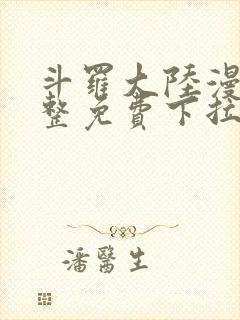 斗羅大陸漫
整免費下拉
潘醫生